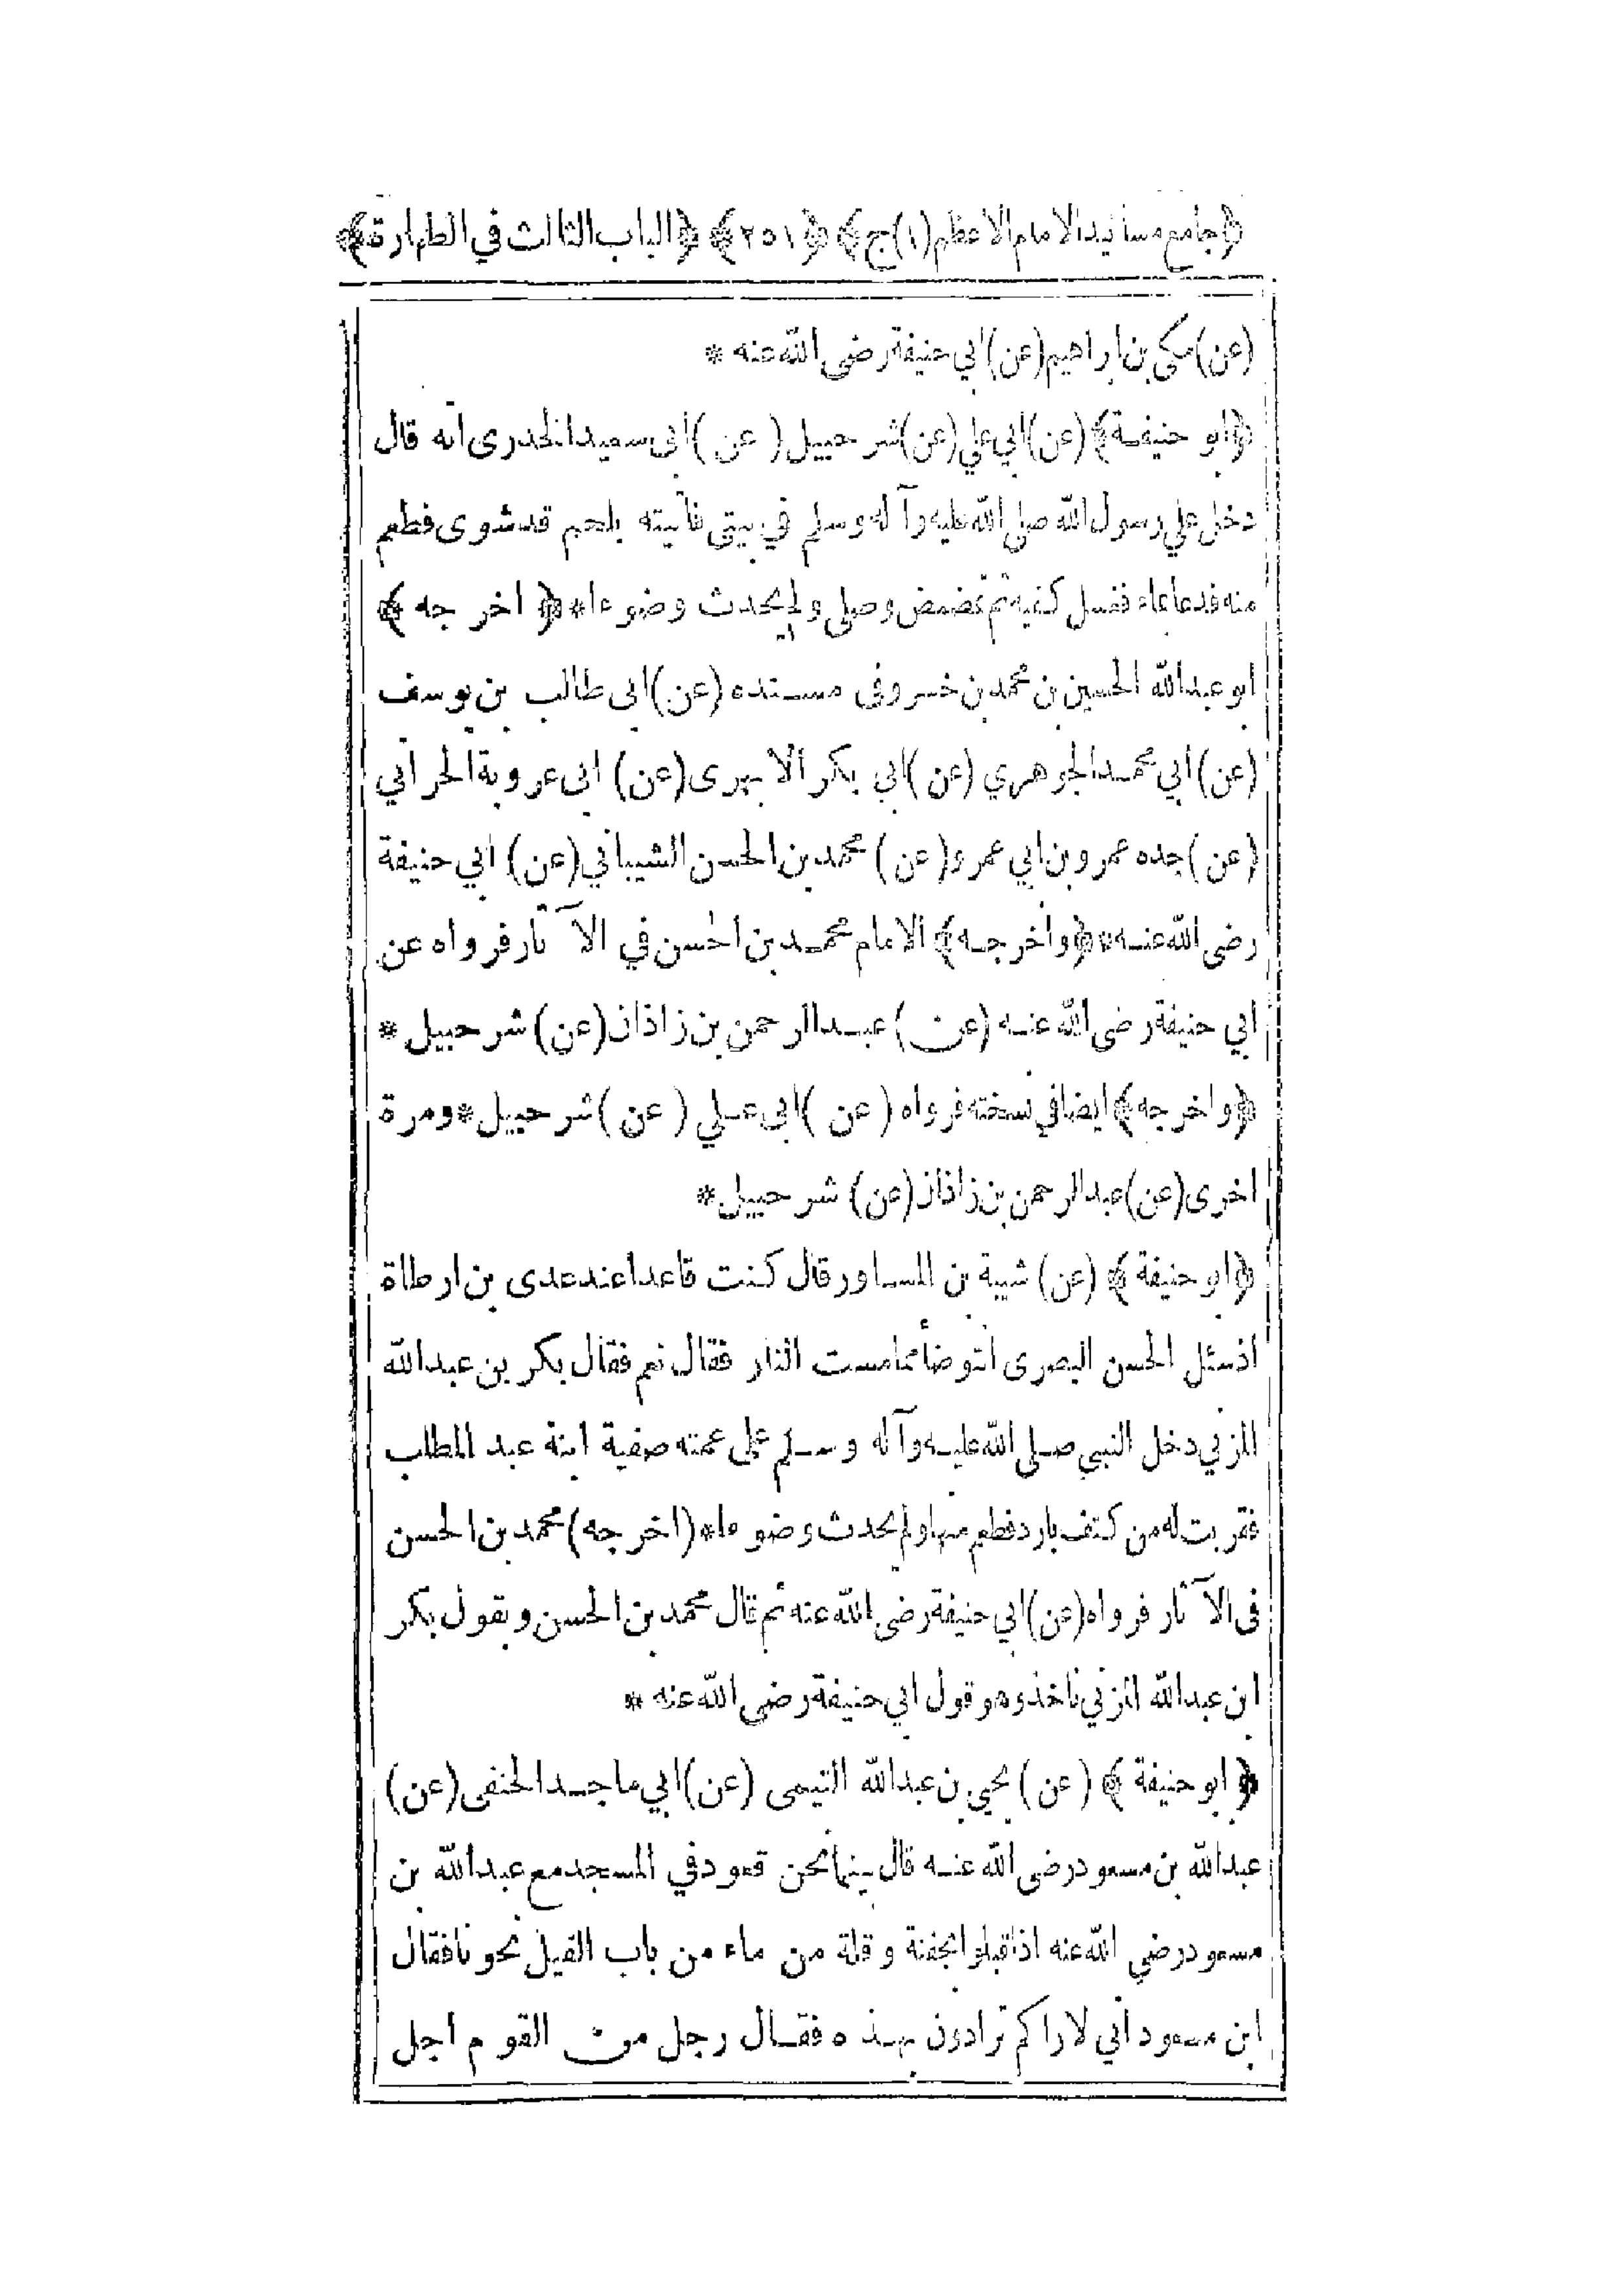 ﴿جامع مسانيد الامام الاعظم (١) ج﴾ ﴿٢٥١﴾ ﴿الباب الثالث في الطهارة﴾
(عن) مكى بن ابراهيم (عن) ابي حنيفة رضى الله عنه *
﴿ابو حنيفة﴾ (عن) ابي علي (عن) شرحبيل (عن) ابى سعيد الخدرى انه قال
دخل علي رسول الله صلى الله عليه وآله وسلم في بيتى فأتيته بلحم قد شوى فطعم
منه فدعا بماء فغسل كفيه ثم تمضمض وصلى ولم يحدث وضوءا * ﴿اخرجه﴾
ابو عبدالله الحسين بن محمد بن خسرو فى مسنده (عن) ابى طالب بن يوسف
(عن) ابي محمد الجوهري (عن) ابي بكر الابهرى (عن) ابى عروبة الحراني
(عن) جده عمرو بن ابي عمرو (عن) محمد بن الحسن الشيباني (عن) ابي حنيفة
رضى الله عنه * ﴿واخرجه﴾ الامام محمد بن الحسن في الآثار فرواه عن
ابي حنيفة رضى الله عنه (عن) عبدالرحمن بن زاذان (عن) شرحبيل *
﴿واخرجه﴾ ايضا في نسخته فرواه (عن) ابى علي (عن) شرحبيل * ومرة
اخرى (عن) عبدالرحمن بن زاذان (عن) شرحبيل *
﴿ابو حنيفة﴾ (عن) شيبة بن المساور قال كنت قاعدا عند عدى بن ارطاة
اذسئل الحسن البصرى أنتوضأ مما مست النار فقال نعم فقال بكر بن عبدالله
المزني دخل النبي صلى الله عليه وآله وسلم على عمته صفية ابنة عبد المطلب
فقربت له من كتف بارد فطعم منها ولم يحدث وضوءا * (اخرجه) محمد بن الحسن
فى الآثار فرواه (عن) ابي حنيفة رضى الله عنه ثم قال محمد بن الحسن وبقول بكر
ابن عبدالله المزني ناخذ وهو قول ابي حنيفة رضى الله عنه *
﴿ابو حنيفة﴾ (عن) يحيى بن عبدالله التيمى (عن) ابي ماجد الحنفى (عن)
عبدالله بن مسعود رضى الله عنه قال بينما نحن قعود في المسجد مع عبدالله بن
مسعود رضي الله عنه اذ اقبلوا بجفنة وقلة من ماء من باب الفيل نحونا فقال
ابن مسعود اني لاراكم ترادون بهذه فقال رجل من القوم اجل